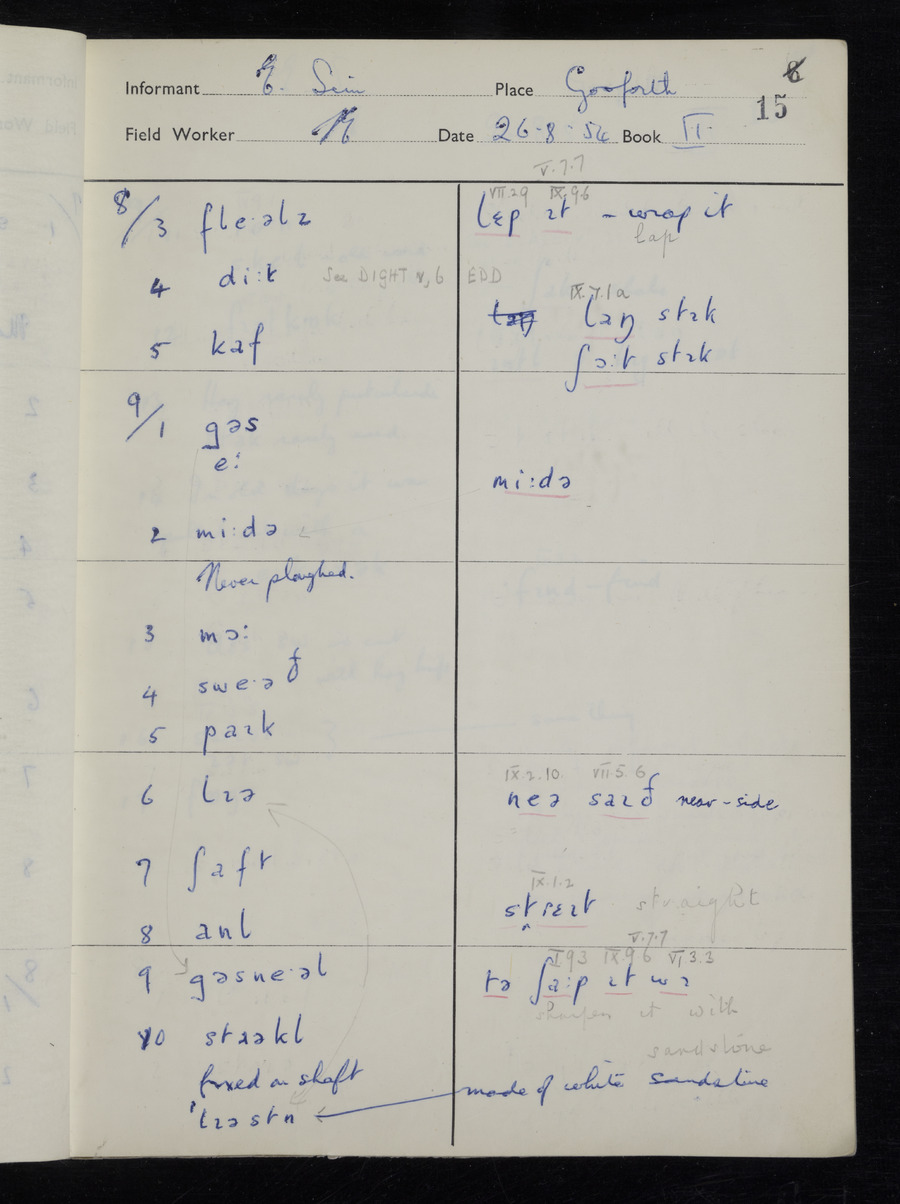 Informant E. Sim Place Gosforth 6
15
Field Worker Date 26-8-54 Book II
V.7.7
VII.29 IX.96
8/3 fle·əlz
lɛp ɪt – wrap it
lap
4 di:t See DIGHT v, 6 EDD
IX.7.1a
laŋ laŋ stɪk
5 kaf
ʃɔ:t stɪk
9/1 gəs
e:
mi:də
2 mi:də
Never ploughed.
3 mɔ:
4 swe·əð
5 park
IX.2.10. VII.5.6
6 lɪə
neə saɪð near-side
7 ʃaft
IX.1.2
strɛɪt straight
8 anl
V.7.7
I 93 IX.96 VI 3.3
9 gəsne·əl
tə ʃa:p ɪt wɪ
sharpen it with
10 straəkl
sandstone
fixed on shaft
made of white sandstone
'lɪəstn